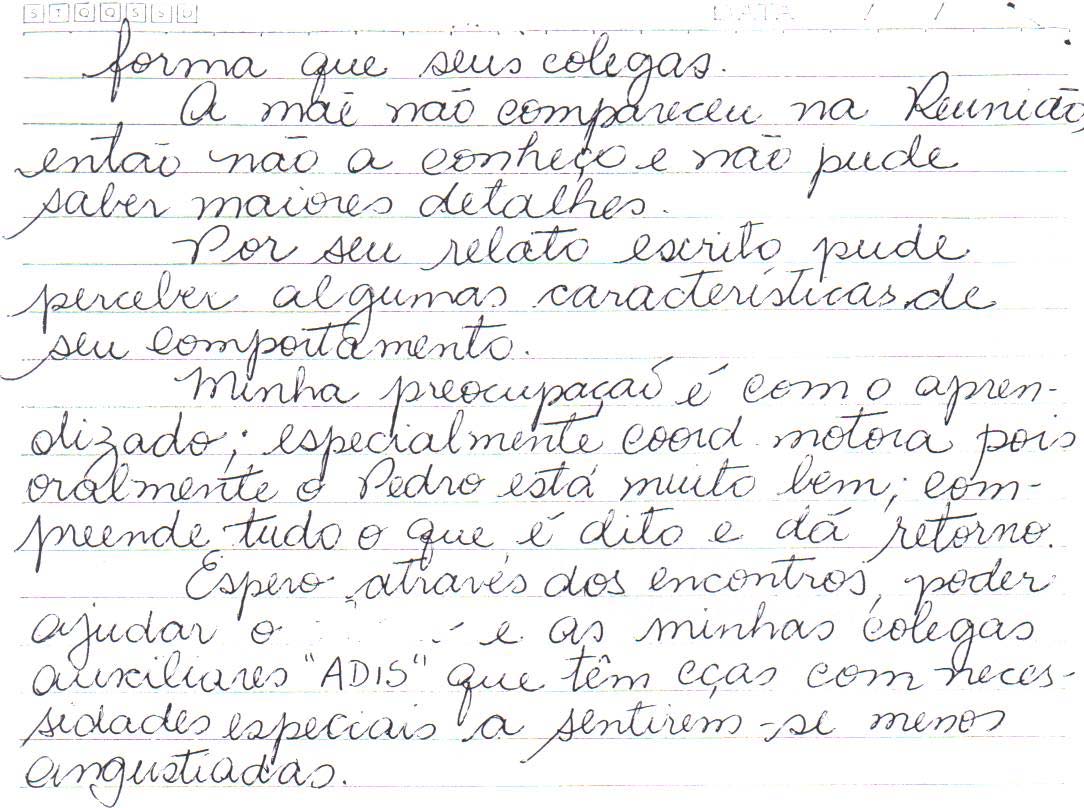 S T Q Q S S D DATA / /
forma que seus colegas.
A mãe não compareceu na Reunião,
então não a conheço e não pude
saber maiores detalhes.
Por seu relato escrito pude
perceber algumas características de
seu comportamento.
Minha preocupação é com o apren-
dizado; especialmente coord. motora pois
oralmente o Pedro está muito bem; com-
preende tudo o que é dito e dá retorno.
Espero através dos encontros, poder
ajudar o e as minhas colegas
auxiliares "ADIS" que têm cças com neces-
sidades especiais a sentirem-se menos
angustiadas.